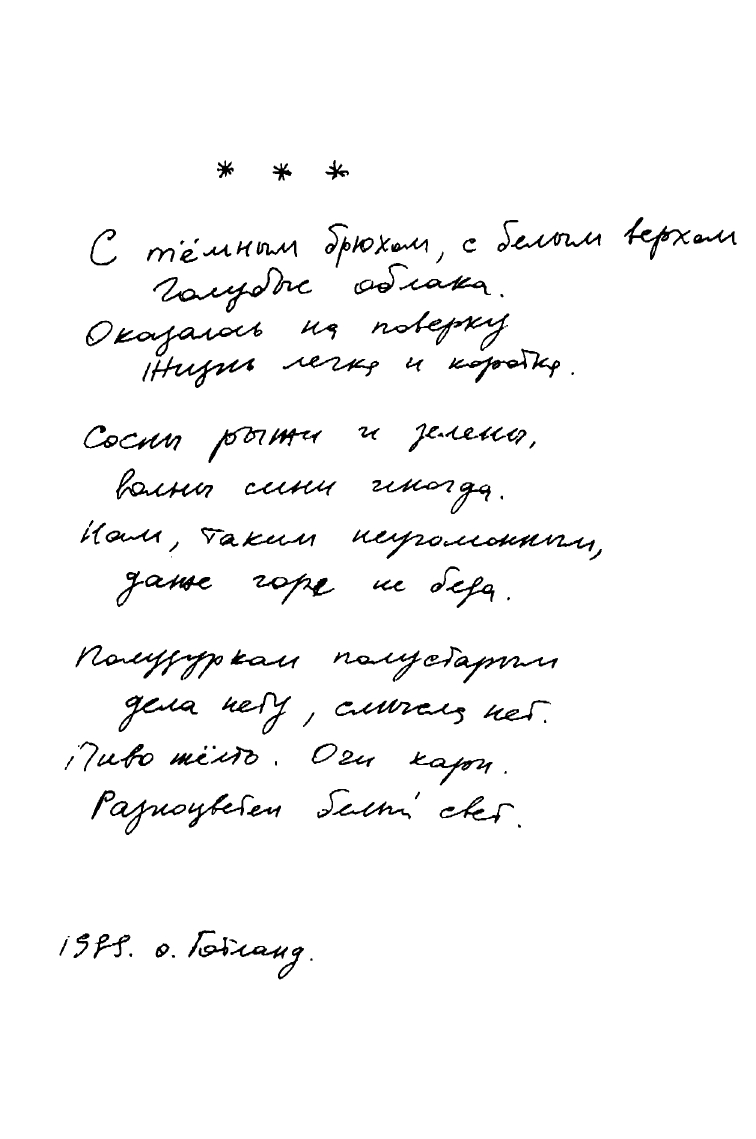 * * *
С тёмным брюхом, с белым верхом
голубые облака.
Оказалась на поверку
Жизнь легка и коротка.
Сосны рыжи и зелены,
волны сини иногда.
Нам, таким неугомонным,
даже горе не беда.
Полудуркам полустарым
дела нету, смысла нет.
Пиво жёлто. Очи кари.
Разноцветен белый свет.
о. Готланд.